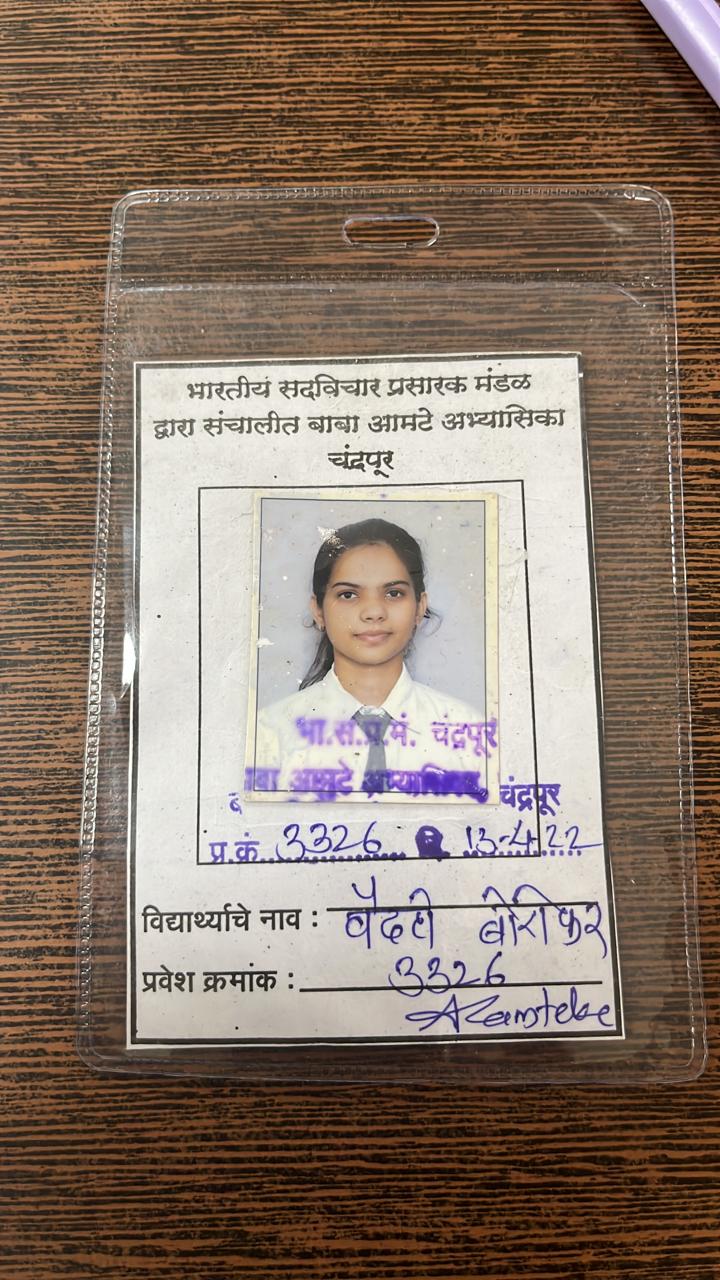 भारतीय सदविचार प्रसारक मंडळ
द्वारा संचालीत बाबा आमटे अभ्यासिका
चंद्रपूर
भा.स.प्र.मं. चंद्रपूर
आमटे अभ्यासिका, चंद्रपूर
प्र.कं. 3326 13-4-22
विद्यार्थ्याचे नाव : वैदही बोरीकर
प्रवेश क्रमांक : 3326